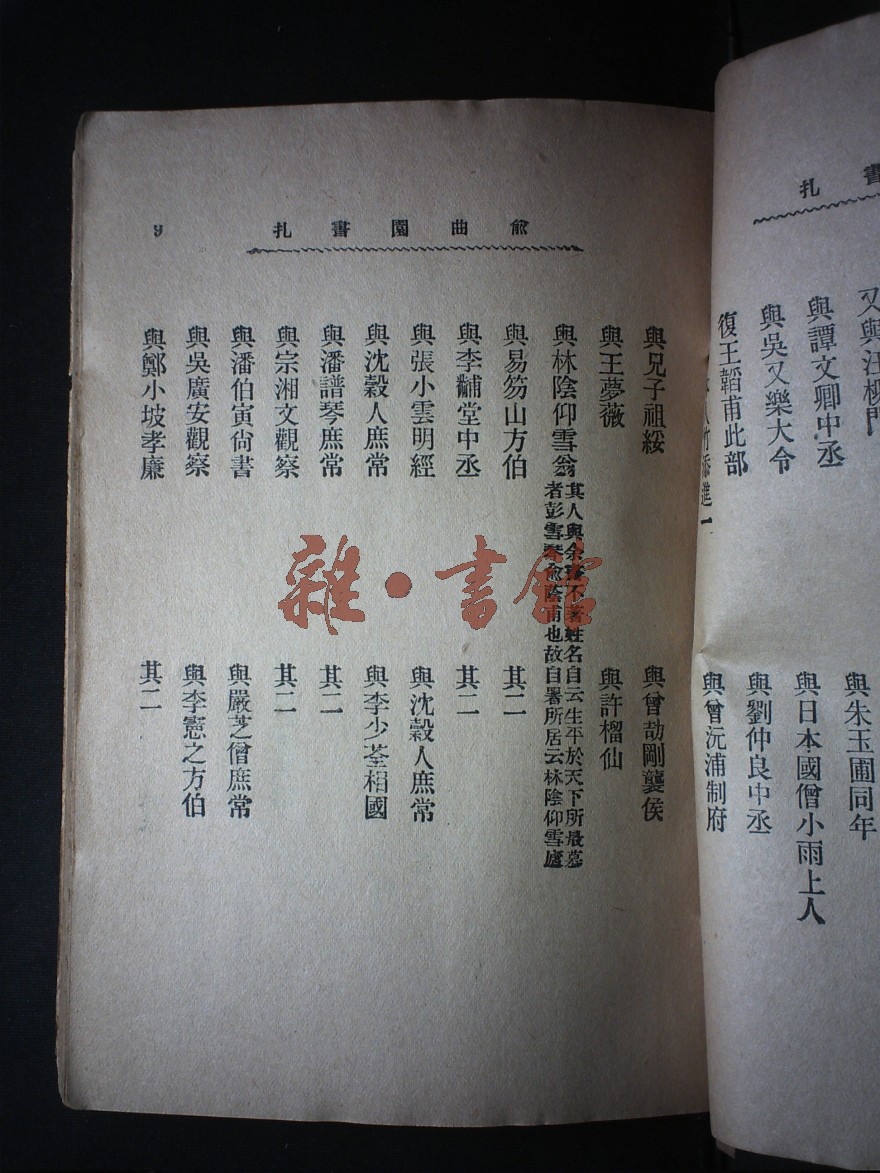 書扎
又與汪柳門
與朱玉圃同年
與譚文卿中丞
與日本國僧小雨上人
與吳又樂大令
與劉仲良中丞
復王韜甫此部
與曾沅浦制府
竹添進一
兪曲園書扎
9
與兄子祖綏
與曾劼剛襲侯
與王夢薇
與許榴仙
與林陰仰雪翁
其人與余書不著姓名自云生平於天下所最慕
者彭雪琴兪蔭甫也故自署所居云林陰仰雪廬
與易笏山方伯
其二
與李黼堂中丞
其二
與張小雲明經
與沈穀人庶常
與沈穀人庶常
與李少荃相國
與潘譜琴庶常
其二
與宗湘文觀察
其二
與潘伯寅尙書
與嚴芝僧庶常
與吳廣安觀察
與李憲之方伯
與鄭小坡孝廉
其二
雜·書館